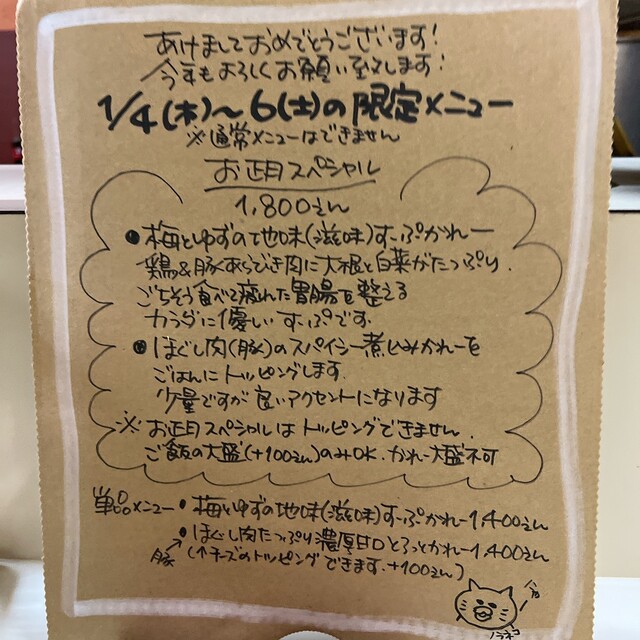 あけましておめでとうございます!
今年もよろしくお願い致します!
1/4(木)~6(土)の限定メニュー
※通常メニューはできません
お正月スペシャル
1,800えん
●梅とゆずの地味(滋味)すーぷかれー
鶏&豚あらびき肉に大根と白菜がたっぷり.
ごちそう食べて疲れた胃腸を整える
カラダに優しいすーぷです.
●ほぐし肉(豚)のスパイシー煮込みかれーを
ごはんにトッピングします.
少量ですが良いアクセントになります
※お正月スペシャルはトッピングできません.
ご飯の大盛(+100えん)のみOK.かれー大盛不可
単品メニュー・梅とゆずの地味(滋味)すーぷかれー1,400えん
・ほぐし肉たっぷり濃厚甘口とろっとかれー1,400えん
豚
(↑チーズのトッピングできます.+100えん)
ノラネコ